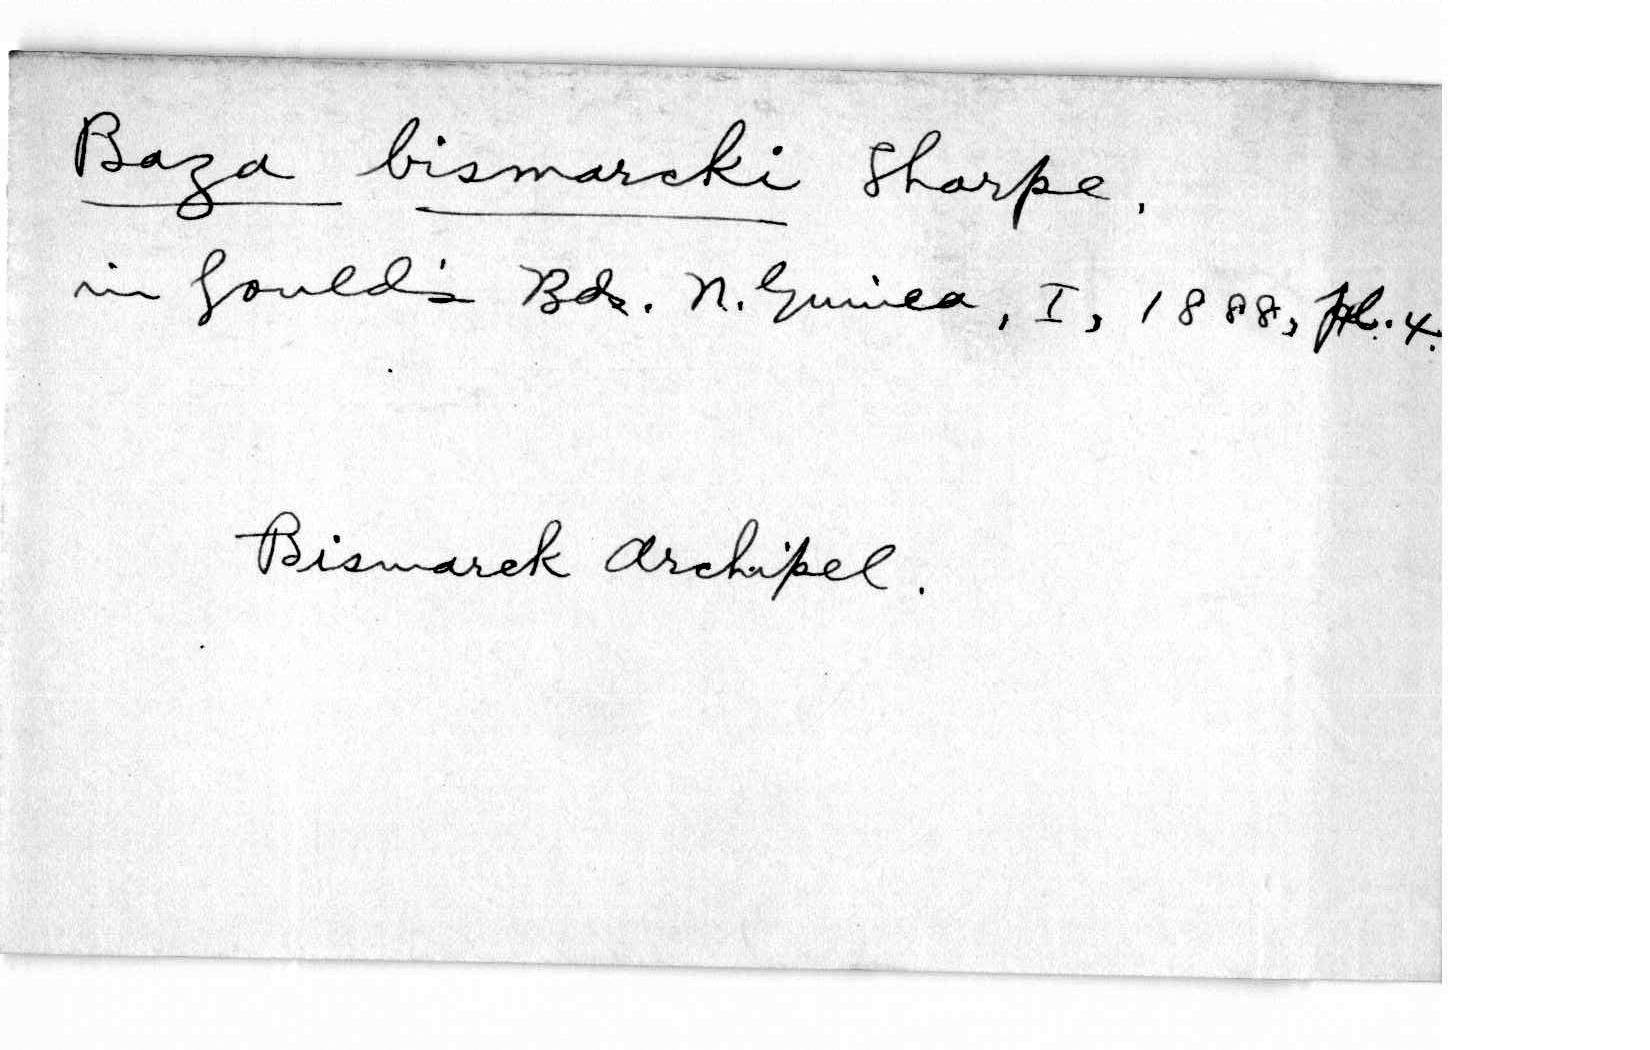 Baza bismarcki Sharpe.
in Gould's Bds. N. Guinea, I, 1888, pl. x.
Bismarck Archipel.